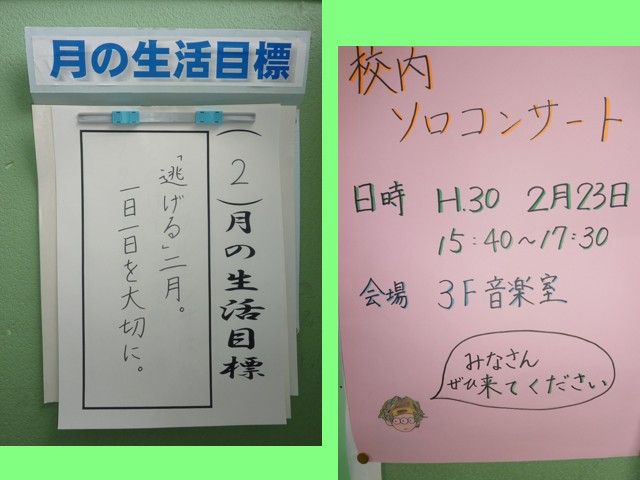 月の生活目標
(2)月の生活目標
「逃げる」二月。
一日一日を大切に。
校内
ソロコンサート
日時 H.30 2月23日
15:40～17:30
会場 3F音楽室
みなさん
ぜひ来てください